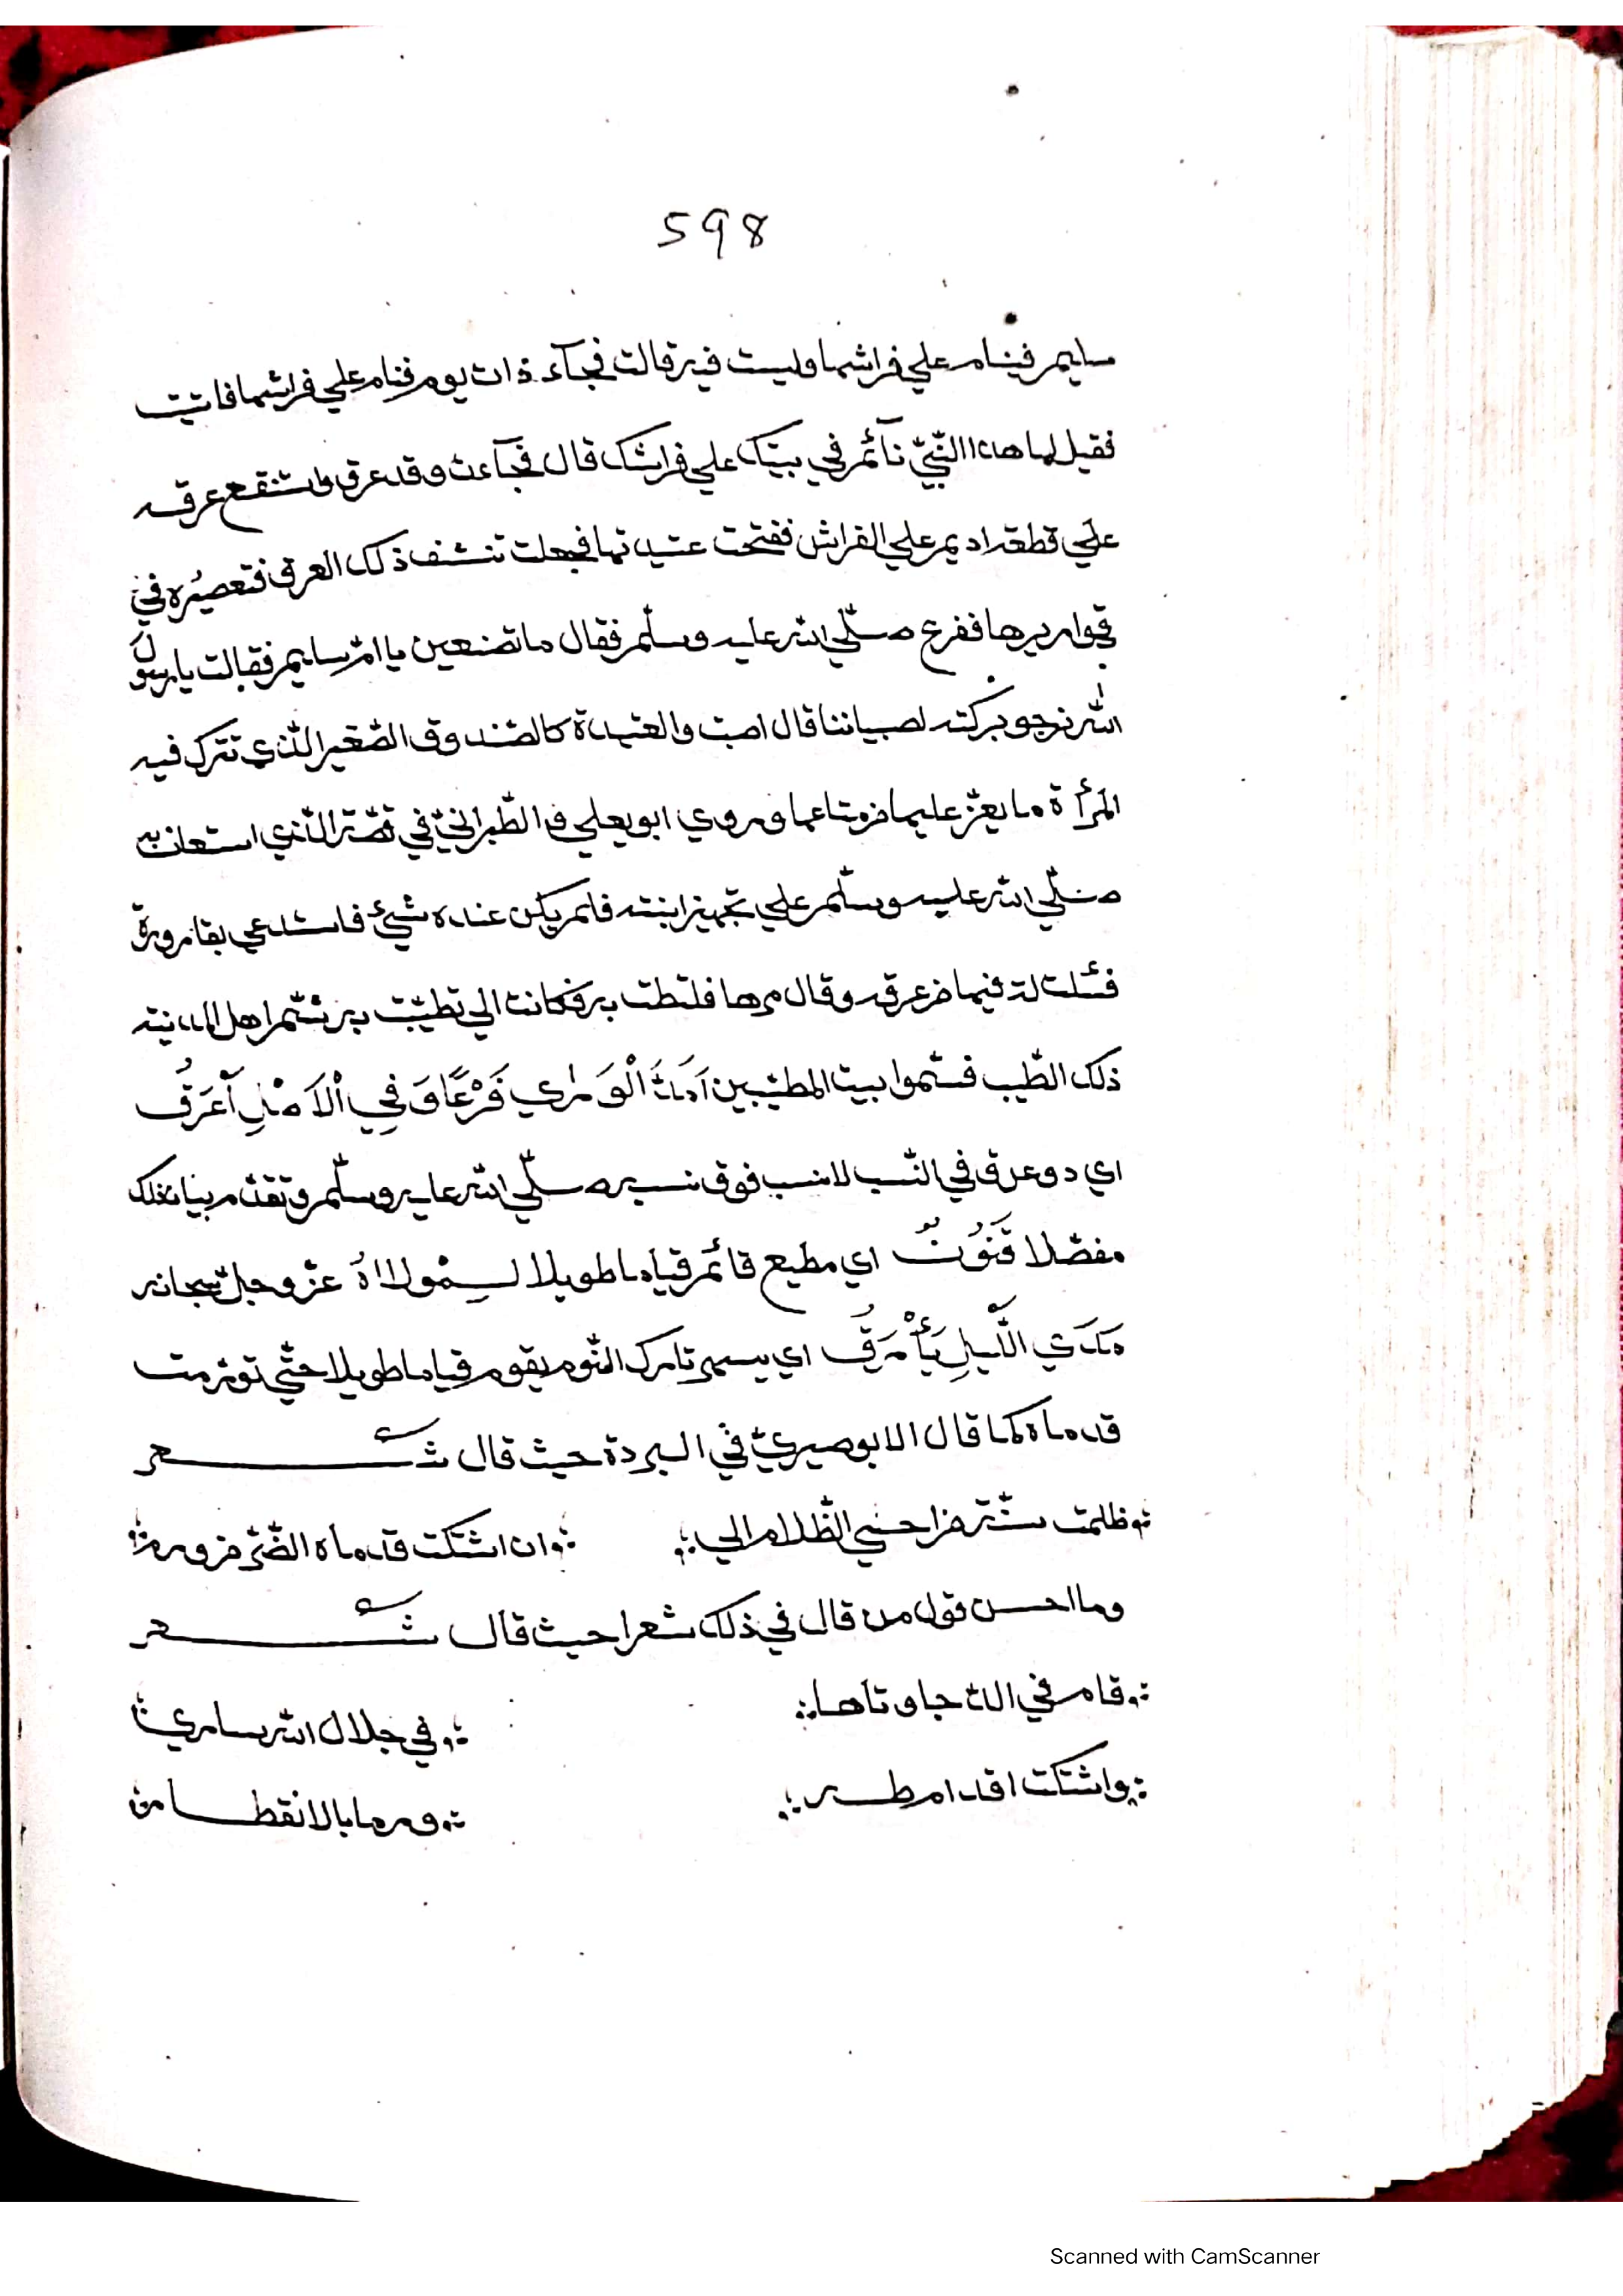 598
سليم فينام علي فراشها وليست فيه قالت فجآء ذات يوم فنام علي فراشها فاتيت
فقيل لها هذا النّبيّ نآئم في بيتك علي فراشك قال فجآءت وقد عرق واستنقع عرقه
علي قطعة اديم علي الفراش ففتحت عتيدتها فجعلت تنشف ذلك العرق فتعصره في
قواريرها ففزع صلّي الله عليه وسلّم فقال ما تصنعين يا امّ سليم فقالت يا رسول
الله نرجو بركته لصبياننا قال اصبت والعتيدة كالصّندوق الصّغير الّذي تترك فيه
المرأة ما يعزّ عليها من متاعها وروي ابو يعلي والطّبرانيّ في قصّة الّذي استعان به
صلّي الله عليه وسلّم علي تجهيز ابنته فلم يكن عنده شيئ فاستدعي بقارورة
فسلت له فيها من عرقه وقال مرها فلتطيب به فكانت اذا تطيّبت به شمّ اهل المدينة
ذلك الطّيب فسمّوا بيت المطيّبين اَمَتُّ الْوَرٰي فَرْعًا وَفِي الْاَصْلِ اَعْرَقُ
اي ذو عرق في النّسب لا نسب فوق نسبه صلّي الله عليه وسلّم وتقدّم بيان ذلك
مفصّلا قَنُوْتٌ اي مطيع قائم قياما طويلا لِمَوْلَاهُ عزّ وجلّ سبحانه
مَدَي اللَّيْلِ يَأْرَقُ اي يسهر تارك النّوم يقوم قياما طويلا حتّي تورّمت
قدماه كما قال الابوصيريّ في البردة حيث قال شعر
ظلمت سنّة من احيي الظّلام الي ان اشتكت قدماه الضّرّ من ورم
وما احسن قول من قال في ذلك شعرا حيث قال شعر
قام في الدّجا وتاها في جلال الله ساري
واشتكت اقدام طه ورما بالانفطار
Scanned with CamScanner